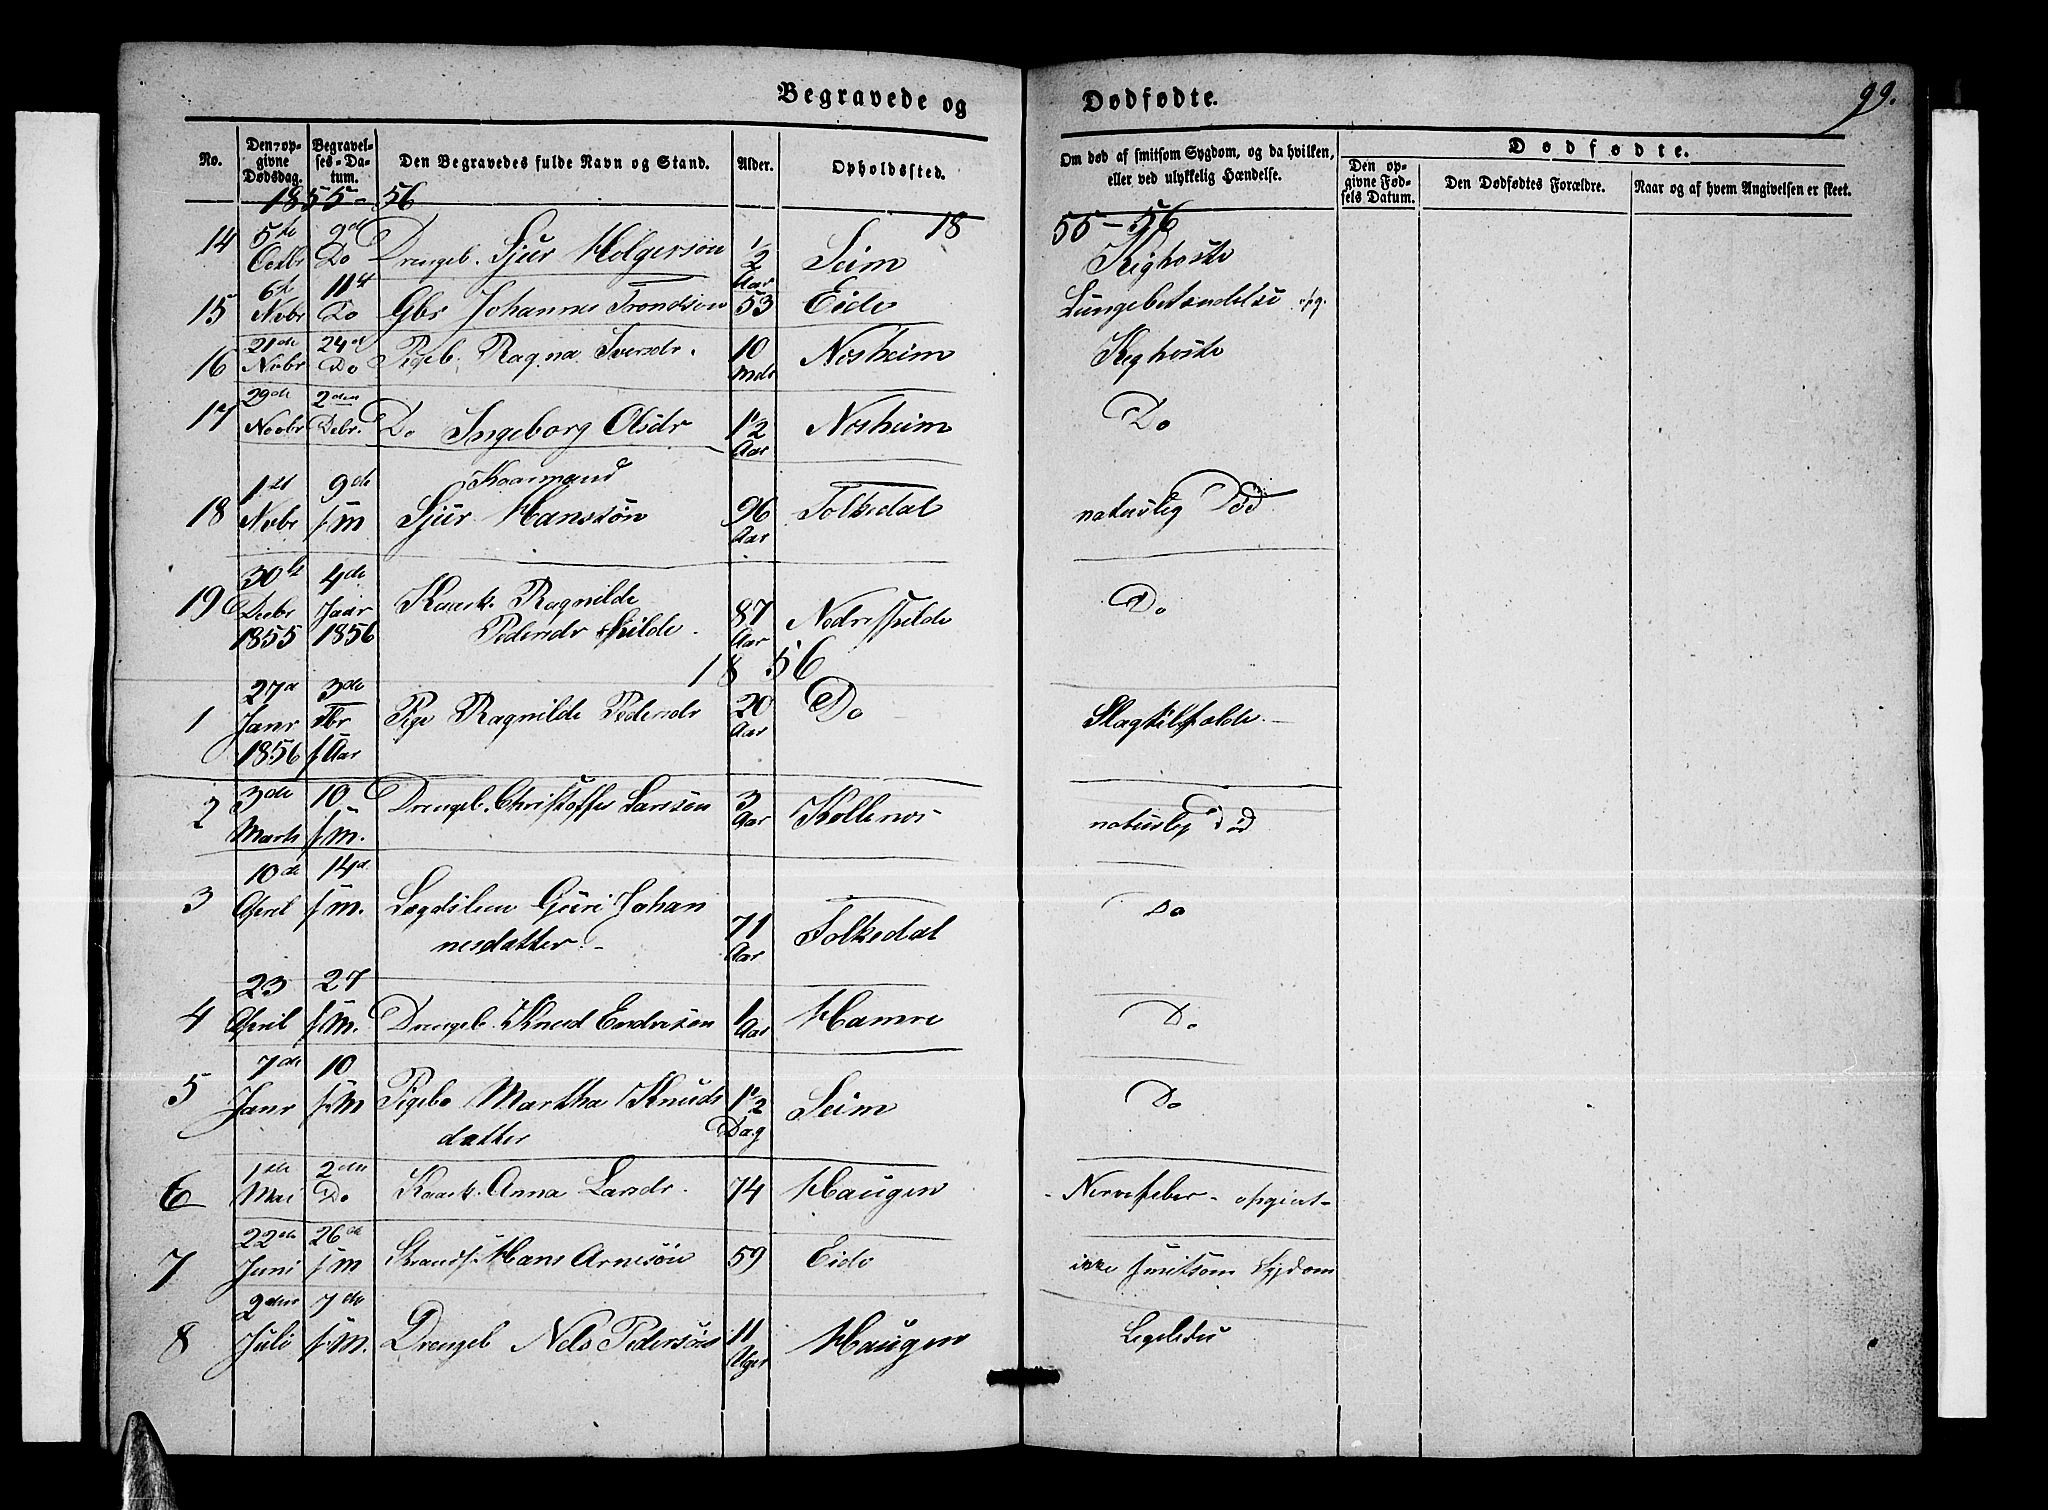 Begravede og Dødfødte. 99.
No. Den opgivne Dødsdag. Begravelses-Datum. Den Begravedes fulde Navn og Stand. Alder. Opholdssted. Om død af smitsom Sygdom, og da hvilken, eller ved ulykkelig Hændelse. Dødfødte.
Den opgivne Fødsels Datum. Den Dødfødtes Forældre. Naar og af hvem Angivelsen er skeet.
1855-56 1855-56
14 5te Octbr 9de Do Drengeb. Sjur Holgersøn 1/2 Aar Seim Kighoste
15 6te Novbr 11te Do Gbr Johannes Trondsøn 53 Eide Lungebetændelse opg.
16 21de Novbr 24d Do Pigeb. Ragna Iversdr. 10 Mdr Nesheim Kighoste
17 29de Novbr 2den Debr. Do Ingeborg Olsdr 1 1/2 Aar Nesheim Do
18 1ste Novbr 9de s.M Kaarmand Sjur Hansøn 96 Aar Folkedal naturlig Død
19 30te Decbr 1855 4de Jaar 1856 Kaark. Ragnilde Pedersdr Skilde. 87 Aar Nedreskilde Do
1856
1 27d Janr 1856 3de Fbr s Aar Pige Ragnilde Pedersdr 20 Aar Do Slagtilfælde.
2 3de Marts 10 s.M. Drengeb. Christoffer Larssøn 3 Aar Kollenes naturlig Død
3 10de April 14d s.M. Lægdslem Guri Johannesdatter. 71 Aar Folkedal Do
4 23 April 27 s.M. Drengeb. Knud Endresøn 1 Aar Hamre Do
5 7de Janr 10 s.M Pigeb Martha Knudsdatter 1 1/2 Dag Seim Do
6 1ste Mai 2den Do Kaark. Anna Larsdr. 74 Haugen Nervefeber - opgivet
7 22de Juni 26de s.M Hans Arnesøn 59 Eide ikke smitsom Sygdom
8 2den Juli 7de s.M. Drengeb Nels Pedersøn 11 Uger Haugen